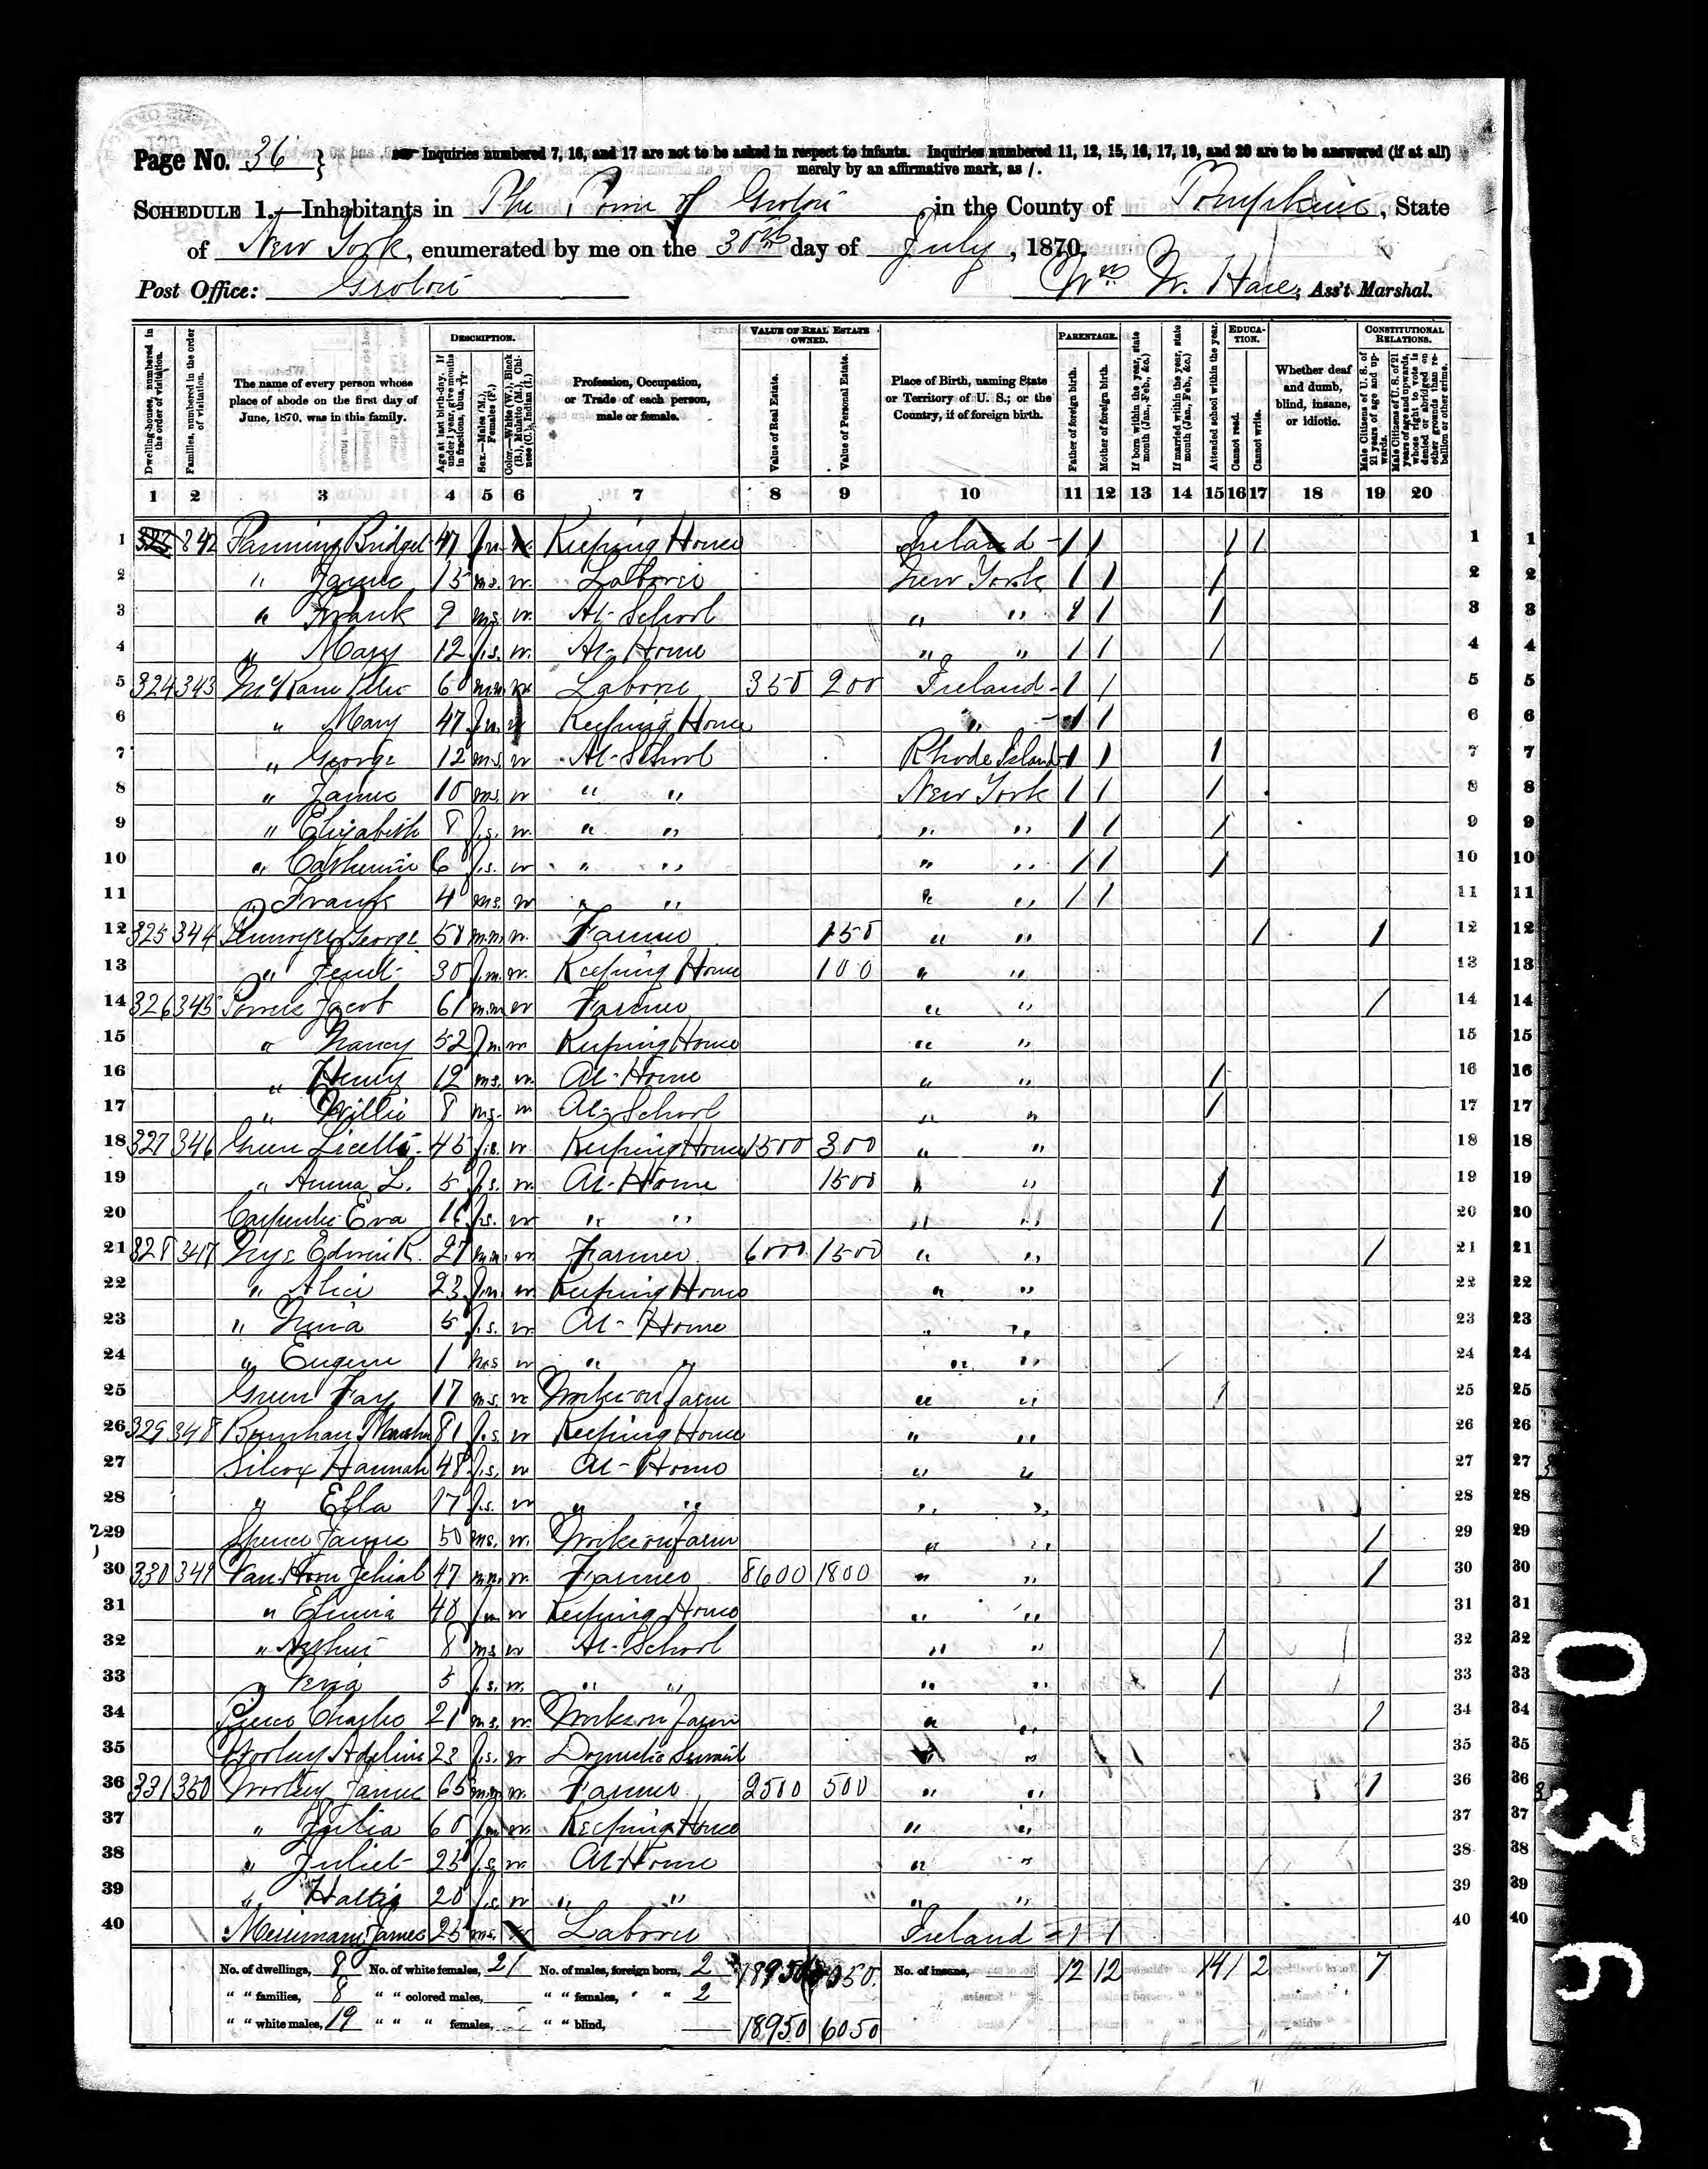 Page No. 36
Inquiries numbered 7, 16, and 17 are not to be asked in respect to infants. Inquiries numbered 11, 12, 15, 16, 17, 19, and 20 are to be answered (if at all)
merely by an affirmative mark, as /.
SCHEDULE 1.—Inhabitants in The Town of Groton in the County of Tompkins, State
of New York, enumerated by me on the 30th day of July, 1870.
Post Office: Groton Wm W. Hare, Ass't Marshal.
DESCRIPTION. VALUE OF REAL ESTATE OWNED. PARENTAGE. EDUCATION. CONSTITUTIONAL RELATIONS.
Dwelling-houses, numbered in the order of visitation.
Families, numbered in the order of visitation.
The name of every person whose place of abode on the first day of June, 1870, was in this family.
Age at last birth-day. If under 1 year, give months in fractions, thus,
Sex.—Males (M.), Females (F.)
Color.—White (W.), Black (B.), Mulatto (M.), Chinese (C.), Indian (I.)
Profession, Occupation, or Trade of each person, male or female.
Value of Real Estate.
Value of Personal Estate.
Place of Birth, naming State or Territory of U. S.; or the Country, if of foreign birth.
Father of foreign birth.
Mother of foreign birth.
If born within the year, state month (Jan., Feb., &c.)
If married within the year, state month (Jan., Feb., &c.)
Attended school within the year.
Cannot read.
Cannot write.
Whether deaf and dumb, blind, insane, or idiotic.
Male Citizens of U. S. of 21 years of age and upwards.
Male Citizens of U. S. of 21 years of age and upwards, whose right to vote is denied or abridged on other grounds than rebellion or other crime.
1 2 3 4 5 6 7 8 9 10 11 12 13 14 15 16 17 18 19 20
1 342 Fanning Bridget 47 f.m. Keeping House Ireland / / / / 1 1
2 " James 15 m.s. w. Laborer New York / / / 2 2
3 " Frank 9 m.s. w. At School " " / / / 3 3
4 " Mary 12 f.s. w. At Home " " / / / 4 4
5 324 343 McKane Peter 60 m.m. w. Laborer 350 200 Ireland / / 5 5
6 " Mary 47 f.m. w Keeping House " / / 6 6
7 " George 12 m.s. w At School Rhode Island / / / 7 7
8 " James 10 m.s. w " " New York / / / 8 8
9 " Elizabeth 8 f.s. w. " " " " / / / 9 9
10 " Catherine 6 f.s. w " " " " / / / 10 10
11 " Frank 4 m.s. w " " " " / / 11 11
12 325 344 George 58 m.m. w. Farmer 150 " " / / 12 12
13 " 30 f.m. w. Keeping House 100 " " 13 13
14 326 345 Jacob 61 m.m. w Farmer " " / 14 14
15 " Nancy 52 f.m. w Keeping House " " 15 15
16 " Henry 12 m.s. w. At Home " " / 16 16
17 " Willie 8 m.s. w At School " " / 17 17
18 327 346 Green 45 f.s. w Keeping House 1500 300 " " 18 18
19 " Anna L. 5 f.s. w. At Home 1500 " " / 19 19
20 Carpenter Eva f.s. w " " " " / 20 20
21 328 347 Nye Edwin R. 27 m.m. w Farmer 6000 1500 " " / 21 21
22 " Alice 23 f.m. w. Keeping House " " 22 22
23 " Nina 5 f.s. w. At Home " " 23 23
24 " Eugene 1 m.s w " " " " 24 24
25 Green Fay 17 m.s. w Works on farm " " / 25 25
26 329 348 Burnham 81 f.s w Keeping House " " 26 26
27 Silcox Hannah 48 f.s. w At Home " " 27 27
28 " Ella 17 f.s. w " " " " 28 28
29 Spencer James 50 m.s. w. Works on farm " " / 29 29
30 330 349 Van Horn Jehial 47 m.m. w. Farmer 8600 1800 " " / 30 30
31 " 40 f.m w Keeping House " " 31 31
32 " Arthur 8 m.s w At School " " / 32 32
33 " 5 f.s. w. " " " " / 33 33
34 Charles 21 m.s. w. Works on Farm " " / 34 34
35 Adeline 23 f.s. w Domestic Servant " " 35 35
36 331 350 James 65 m.m. w. Farmer 2500 500 " " / 36 36
37 " Julia 60 f.m w. Keeping House " " 37 37
38 " Juliet 25 f.s w. At Home " " 38 38
39 " Hattie 20 f.s. w " " " " 39 39
40 Merriman James 25 m.s. w Laborer Ireland / / 40 40
No. of dwellings, 8 No. of white females, 21 No. of males, foreign born, 2 No. of insane, 12 12 14 1 2 7
" " families, 8 " " colored males, " " females, " " 2
" " white males, 19 " " " females, " " blind, 18950 6050
036